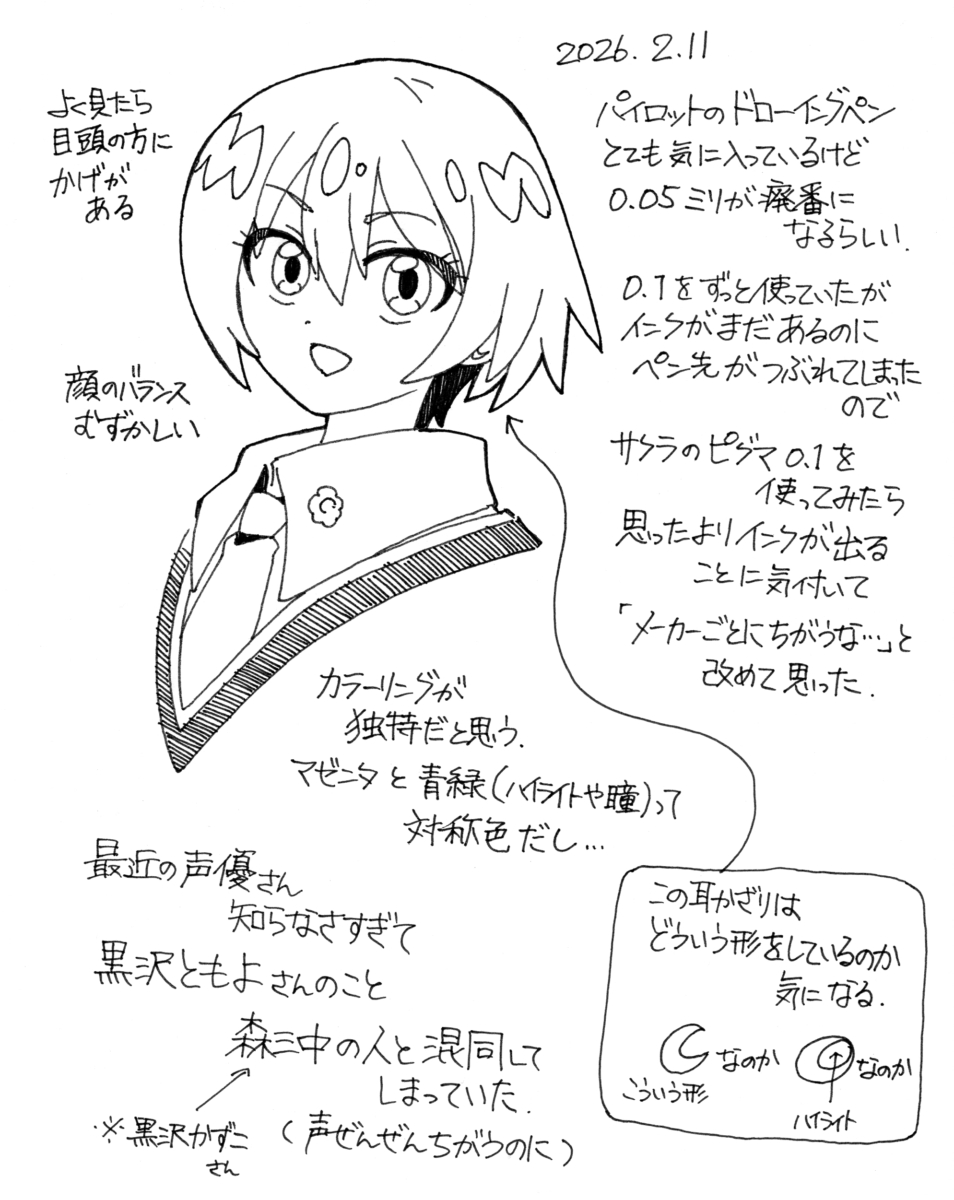 2026.2.11
よく見たら
目頭の方に
かげが
ある
パイロットのドローイングペン
とても気に入っているけど
0.05ミリが廃番に
なるらしい.
0.1をずっと使っていたが
インクがまだあるのに
ペン先がつぶれてしまった
ので
顔のバランス
むずかしい
サクラのピグマ0.1を
使ってみたら
思ったよりインクが出る
ことに気付いて
「メーカーごとにちがうな…」と
改めて思った.
カラーリングが
独特だと思う.
マゼンタと青緑(ハイライトや瞳)って
対称色だし…
最近の声優さん
知らなさすぎて
黒沢ともよさんのこと
森三中の人と混同して
しまっていた.
※黒沢かずこ
さん
(声ぜんぜんちがうのに)
この耳かざりは
どういう形をしているのか
気になる.
なのか
なのか
こういう形
ハイライト